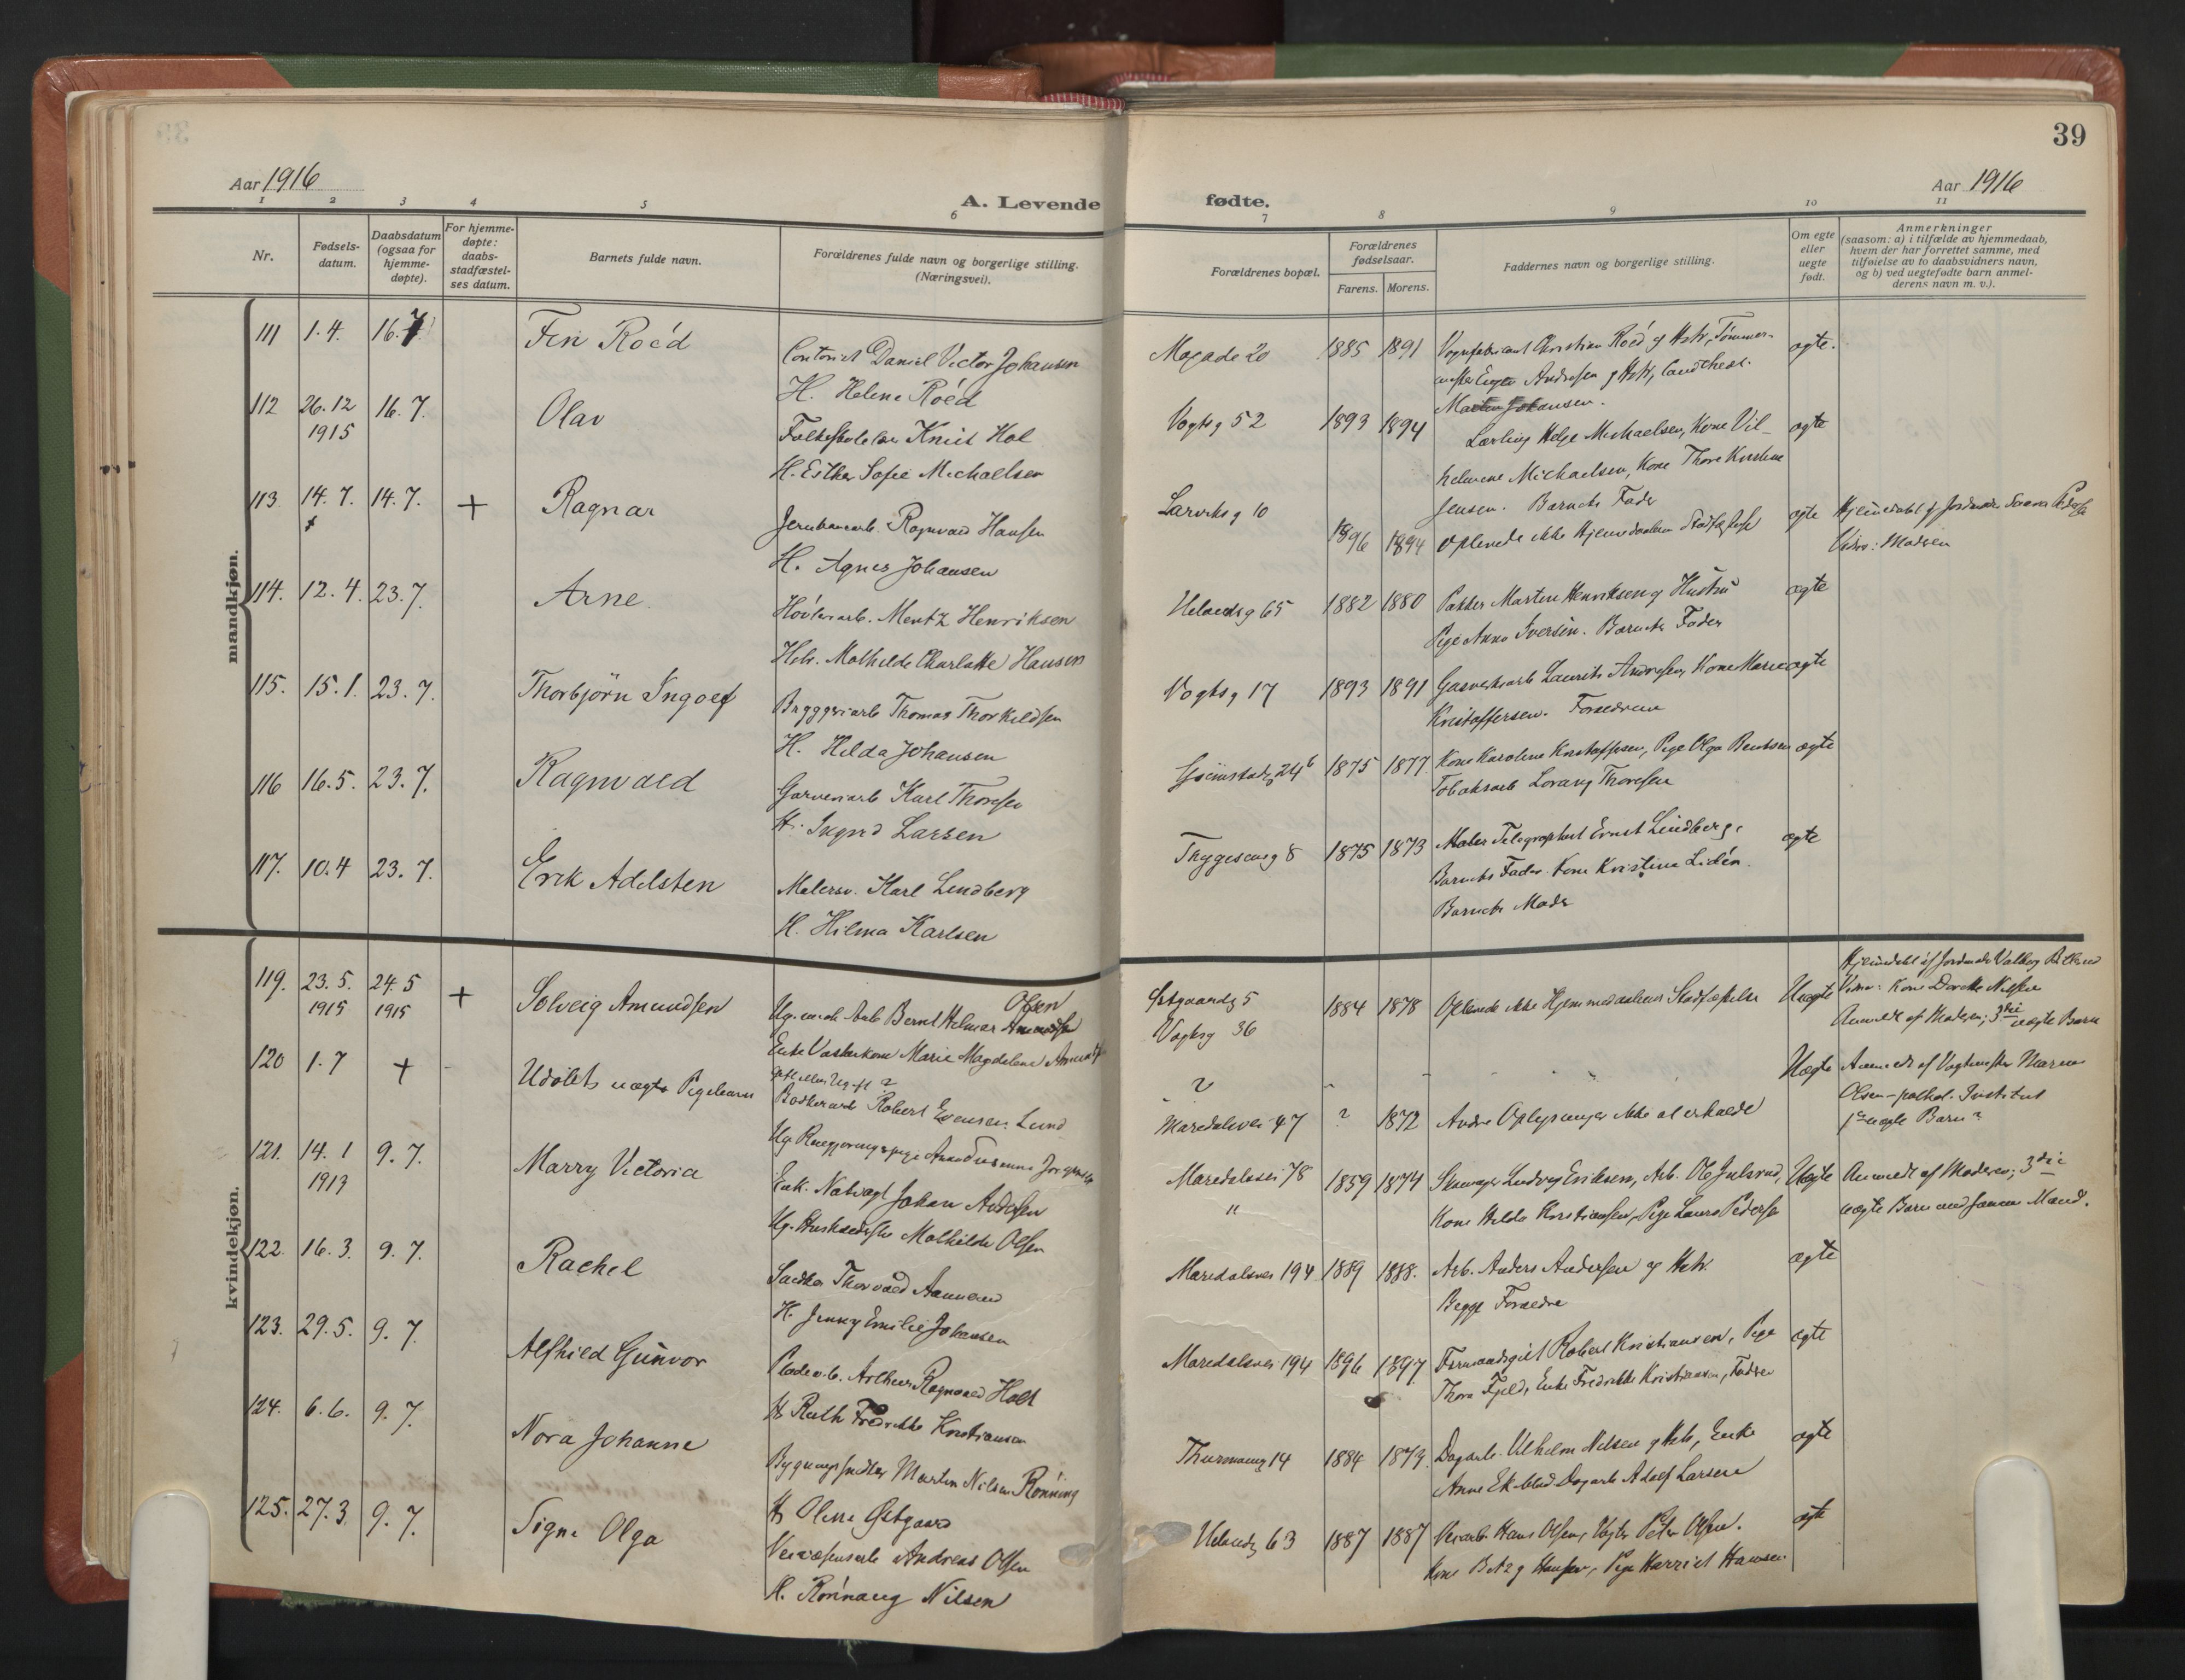 39
Aar 1916
A. Levende fødte.
Aar 1916
1 2 3 4 5 6 7 8 9 10 11
Nr.
Fødsels-
datum.
Daabsdatum
(ogsaa for
hjemme-
døpte).
For hjemme-
døpte:
daabs-
stadfæstel-
ses datum.
Barnets fulde navn.
Forældrenes fulde navn og borgerlige stilling.
(Næringsvei).
Forældrenes bopæl.
Forældrenes
fødselsaar.
Farens. Morens.
Faddernes navn og borgerlige stilling.
Om egte
eller
uegte
født.
Anmerkninger
(saasom: a) i tilfælde av hjemmedaab,
hvem der har forrettet samme, med
tilføielse av to daabsvidners navn,
og b) ved uegtefødte barn anmel-
derens navn m. v.).
mandkjøn.
111 1.4. 16.7. Fin Roéd
Contorist Daniel Victor Johansen
H. Helene Roéd
1885 1891
Vognfabricant Christian Roéd og Hstr, Tømmer-
Andresen og Hstr,
Johansen.
ægte.
112 26.12 1915 16.7. Olav
Knut Hol
H. Esther Sofie Michaelsen
Vogtsg 52 1893 1894
Lærling Helge Michaelsen, Kone Vil-
helmine Michaelsen, Kone Thora Kirstine
Jensen. Barnets Fader
ægte
113 14.7. 14.7. + Ragnar
Ragnvald Hansen
H. Agnes Johansen
Larviksg 10 1896 1894
Oplevede ikke Hjemmedaabens Stadfæstelse
ægte
Hjemmedøbt af Jordmoder
Vidne: Madsen
114. 12.4. 23.7. Arne
Høvleriarb. Mentz Henriksen
Hstr. Mathilde Charlotte Hansen
Uelandsg 65 1882 1880
Pakker Martin Henriksen og Hustru
Pige Anna Iversen. Barnets Fader
ægte
115. 15.1. 23.7. Thorbjörn Ingolf
Bryggeriarb Thomas Thorkildsen
H. Hilda Johansen
Vogtsg 17 1893 1891
Gasverksarb Laurits Andresen, Kone Marie
Kristoffersen. Forældrene
ægte
116 16.5. 23.7. Ragnvald
Garveriarb Karl Thoresen
H. Ingrid Larsen
Grimstadg 24b 1875 1877
Kone Karoline Kristoffersen, Pige Olga Berntsen
Tobaksarb Lorang Thoresen
ægte
117. 10.4 23.7. Erik Adelsten
Malersv. Karl Lindberg
H. Hilma Karlsen
Thygesensg 8 1875 1873
Maler Telegraphist Ernst Lindberg,
Barnets Fader. Kone Kristina Lidén.
Barnets Moder
ægte
kvindekjøn.
119. 23.5. 1915 24.5 1915 + Solveig Amundsen
Olsen
Ug. mek Arb Bernt Hilmar Amundsen
Enke Vaskerkone Marie Magdalene
Østgaardsg 5
Vogtsg 36
1884 1878
Oplevede ikke Hjemmedaabens Stadfæstelse
Uægte
Hjemmedøbt af Jordmoder Valborg
Vidne: Kone Dorthe Nilsen
Anmeldt af Moderen; 3die uægte Barn
120 1.7 + - Udöbt uægte Pigebarn
Gift eller Ug. ?
Bødkerarb Robert Evensen Lund
Ug.
?
Maridalsvei 47 ? 1872
Andre Oplysninger ikke at erholde
Uægte
Anmeldt af Vagtmester Maren
Olsen - pathol. Institut
1ste uægte Barn?
121. 14.1 1913 9.7. Marry Victoria
Enk. Natvagt Johan Andersen
Ug. Husholderske Mathilde Olsen
Maridalsvei 78
"
1859 1874
Ludvig Eriksen, Arb. Ole Julsrud,
Kone Hilda Kristiansen, Pige Laura Pedersen
Uægte
Anmeldt af Moderen; 3die
uægte Barn med samme Mand.
122. 16.3. 9.7. Rachel
Thorvald
H. Jenny Emilie Johansen
Maridalsvei 194 1889 1888.
Arb. Anders Andersen og Hstr.
Begge Forældre
ægte
123. 29.5. 9.7. Alfhild Gunvor
Arthur Ragnvald Holt
H. Ruth Fredrikke Kristiansen
Maridalsvei 194 1896 1897
Robert Kristiansen, Pige
Thora Fjeld, Enke Fredrikke Kristiansen, Fader
ægte
124. 6.6. 9.7. Nora Johanne
Bygningssnedker Martin Nilsen Rönning
H. Oline Østgaard
Thurmannsg 14 1884 1879
Dagarb. Vilhelm Nilsen og Hstr, Enke
Anne Ekblad Dagarb Adolf Larsen
ægte
125. 27.3. 9.7. Signe Olga
Veivæsensarb Andreas Olsen
H. Rönnaug Nilsen
Uelandsg 63 1887 1887
Veiarb. Hans Olsen, Peter Olsen.
Kone Betzy Hansen, Pige Harriet Hansen
ægte